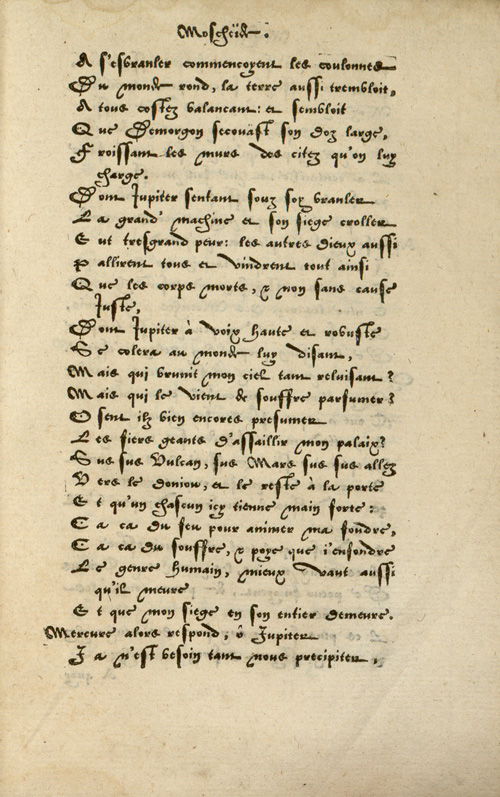 Moscheide.
A s'esbranler commencoyent les coulonnes
Du monde rond, la terre aussi trembloit,
A tous costez balancant: et sembloit
Que Demorgon secouast son doz large,
Froissant les murs des citez qu'on luy
charge.
Dont Jupiter sentant souz soy branler
La grand' machine et son siege croller
Eut tresgrand peur: les autres Dieux aussi
Pallirent tous et vindrent tout ainsi
Que les corps morts, & non sans cause
juste,
Dont Jupiter à voix haute et robuste
Se colera au monde luy disant,
Mais qui brunit mon ciel tant reluisant?
Mais qui le vient de souffre parfumer?
Osent ilz bien encores presumer
Les fiers geants d'assaillir mon palaix?
Sus sus Vulcan, sus Mars sus sus allez
Vers le donjon, et le reste à la porte
Et qu'un chascun icy tienne main forte:
Ca ca du feu pour animer ma foudre,
Ca ca du souffre, & poye que j'enfondre
Le genre humain, mieux vaut aussi
qu'il meure
Et que mon siege en son entier demeure.
Mercure alors respond, ô Jupiter
Ja n'est besoin tant nous precipiter,